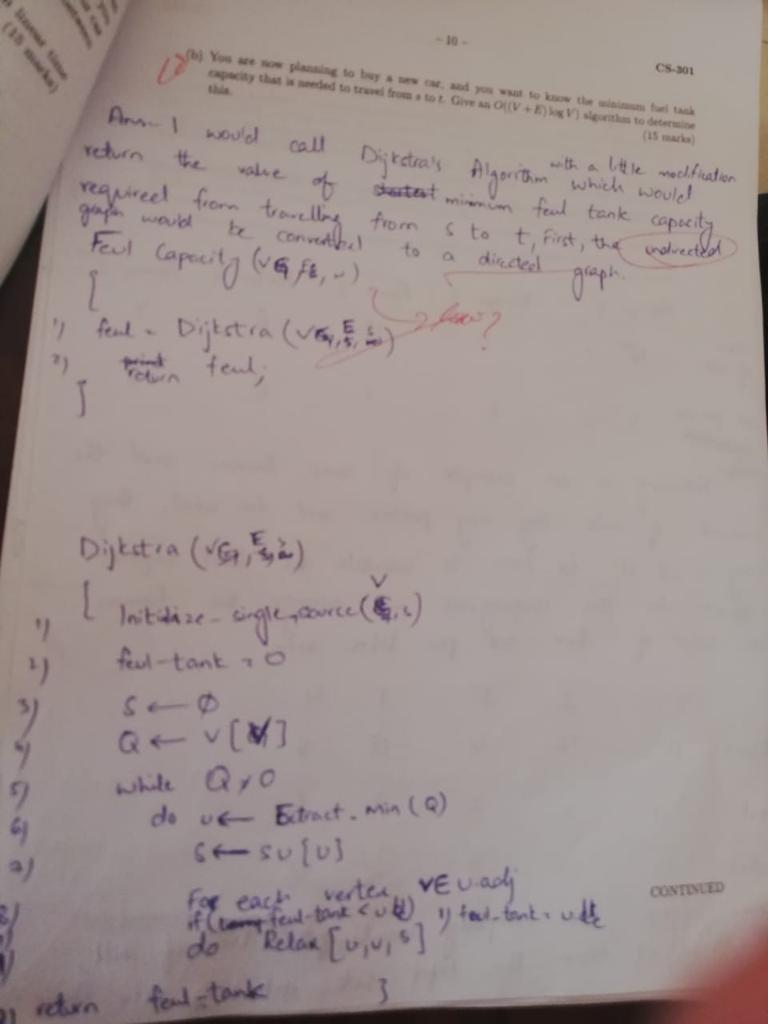 linear time
(15 marks)
- 10 -
CS-301
(b) You are now planning to buy a new car, and you want to know the minimum fuel tank
capacity that is needed to travel from s to t. Give an O((V + E) log V) algorithm to determine
this.
(15 marks)
Ans- I would call Dijkstra's Algorithm with a little modification
return the value of minimum feul tank capacity which would
required from travelling from s to t, First, the undirected
graph would be converted to a directed graph.
Feul Capacity (
[
how?
1) feul = Dijkstra (
2) return feul;
]
Dijkstra (
[
1) Initialize-single-source (V, s)
2) feul-tank = 0
3) S ← Ø
4) Q ← V [V]
5) while Q ≠ 0
6) do u ← Extract-min (Q)
7) S ← S U [U]
8) For each vertex V E u.adj
if ( feul-tank < u ) feul-tank = u
do Relax [u, v, s]
return feul-tank }
CONTINUED